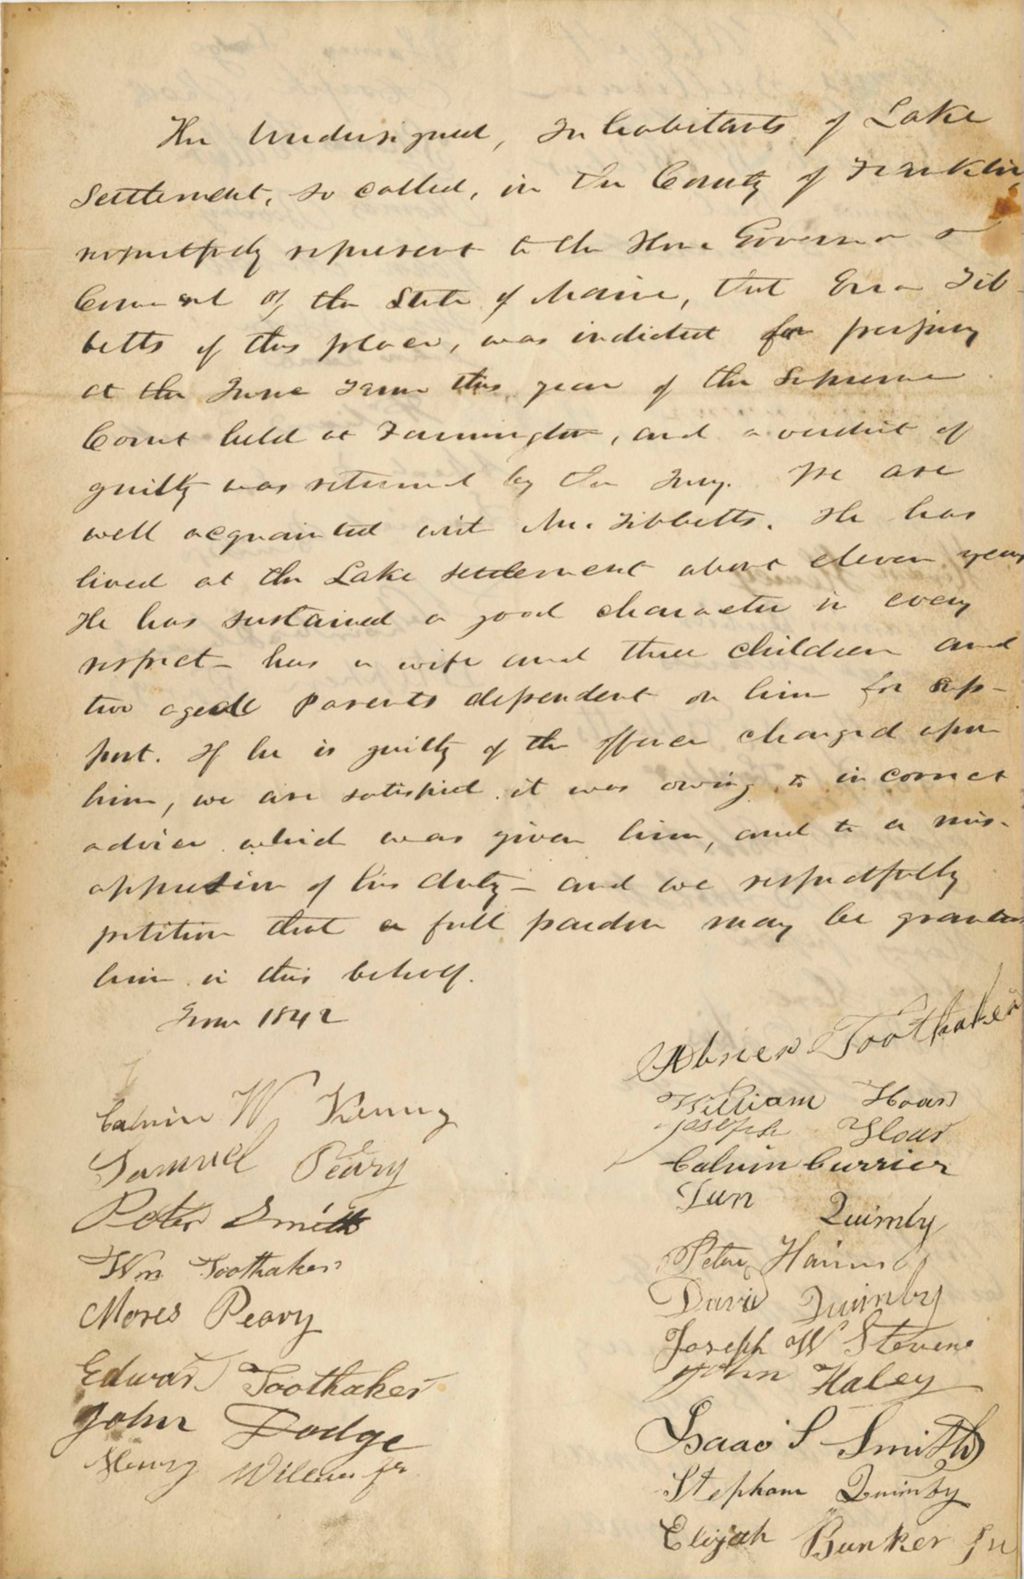 The Undersigned, Inhabitants of Lake
Settlement, so called, in the County of Franklin,
respectfully represent to the Hon Governor &
Council of the State of Maine, that Tib-
betts of this place, was indicted for perjury
at the June Term this year of the Supreme
Court held at Farmington, and a verdict of
guilty was returned by the Jury. We are
well acquainted with Mr. Tibbetts. He has
lived at the Lake settlement about eleven years
He has sustained a good character in every
respect - has a wife and three children and
two aged Parents dependent on him for sup-
port. If he is guilty of the offence charged upon
him, we are satisfied it was owing to incorrect
advice which was given him, and to a mis-
apprehension of his duty - and we respectfully
petition that a full pardon may be granted
him in this behalf.
June 1842
Abner Toothaker
William Hoar
Joseph Hoar
Calvin Currier
Quimby
Peter Haines
David Quimby
Joseph W Stevens
John Haley
Isaac S Smith
Stephen Quimby
Elijah Bunker Jr
Calvin W Kenny
Samuel Peary
Peter Smith
Wm Toothaker
Moses Peavy
Edward Toothaker
John Dodge
Henry Wilbur jr